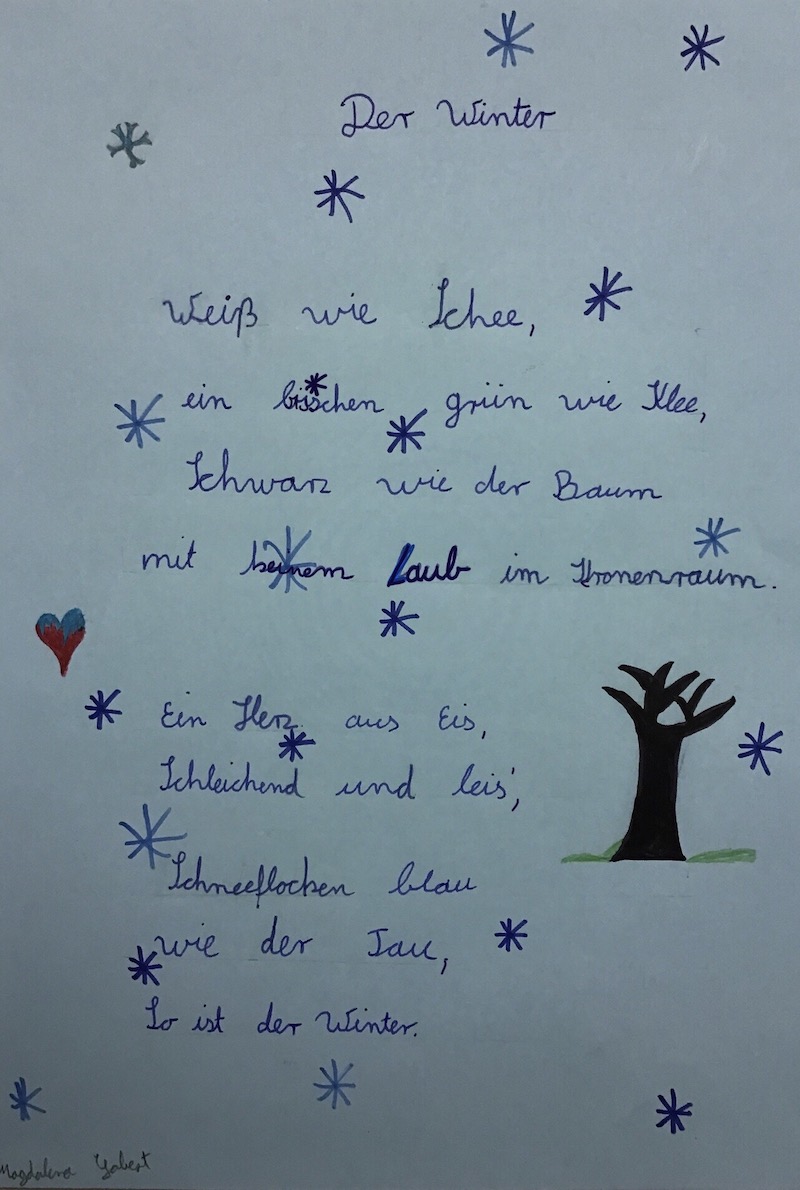 Der Winter
Weiß wie Schee,
ein bisschen grün wie Klee,
Schwarz wie der Baum
mit keinem Laub im Kronenraum.
Ein Herz aus Eis,
Schleichend und leis',
Schneeflocken blau
wie der Tau,
So ist der Winter.
Magdalena